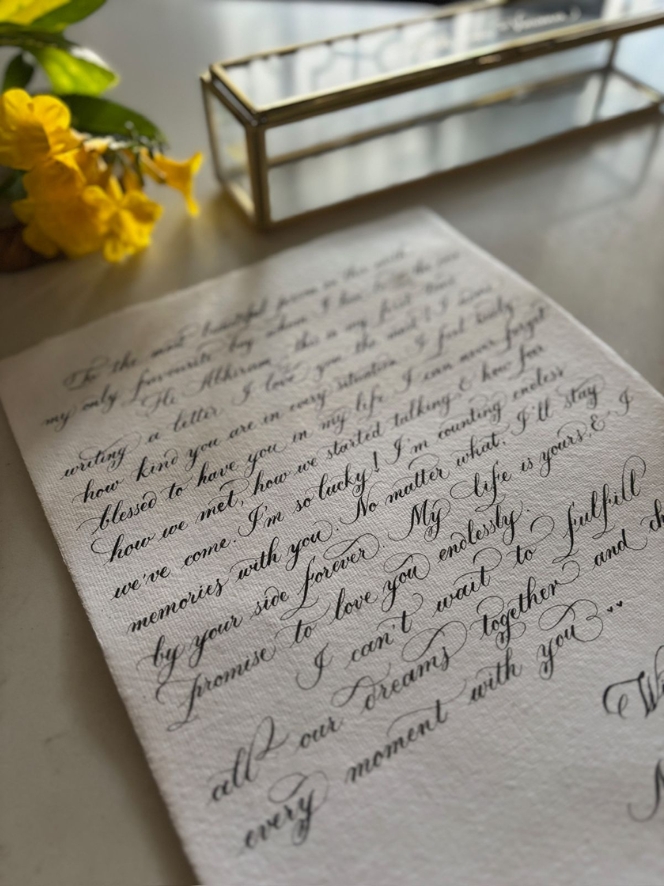 To the most beautiful person in this world
my only favourite boy whom I love
Hi Abhiram, this is my first time
writing a letter. I love you the most! I
how kind you are in every situation. I feel truly
blessed to have you in my life. I can never forget
how we met, how we started talking & how far
we've come. I'm so lucky! I'm counting endless
memories with you. No matter what, I'll stay
by your side forever. My life is yours & I
promise to love you endlessly.
I can't wait to fulfill
all our dreams together and ch
every moment with you..
Wi